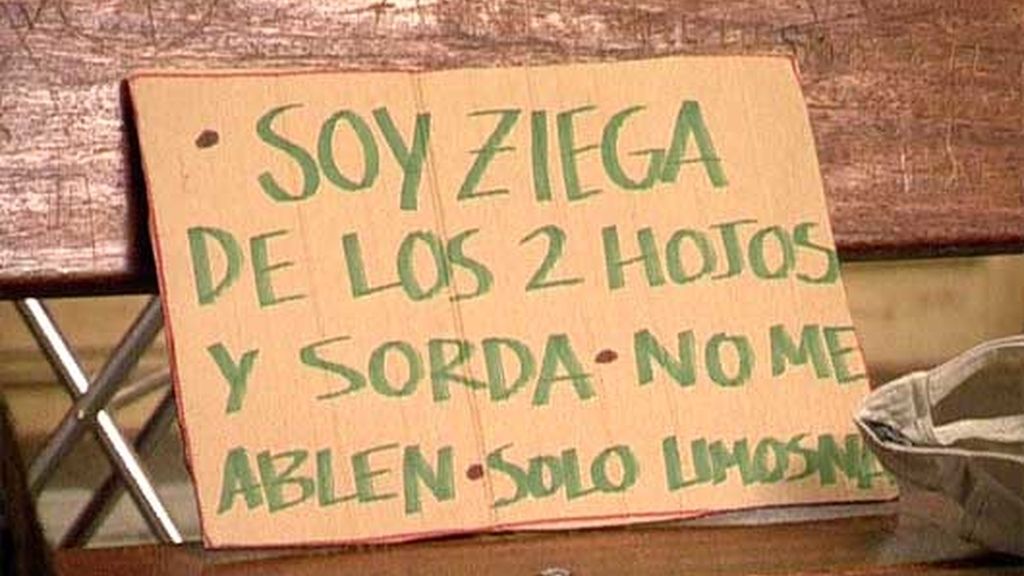 • SOY ZIEGA
DE LOS 2 HOJOS
Y SORDA • NO ME
ABLEN • SOLO LIMOSNA